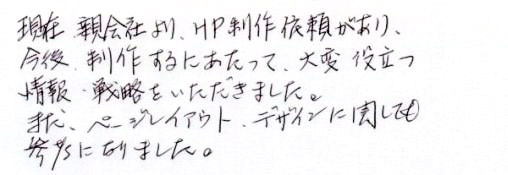 現在 親会社より、HP制作依頼があり、
今後、制作するにあたって、大変役立つ
情報・戦略をいただきました。
また、ページレイアウト、デザインに関しても
参考になりました。